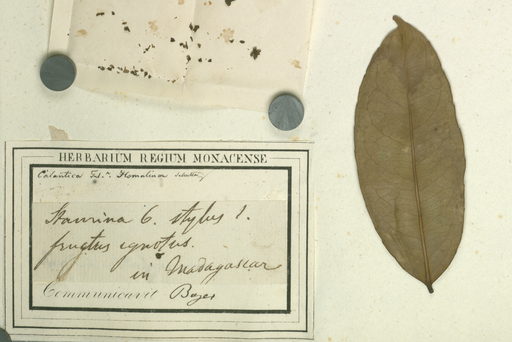 HERBARIUM REGIUM MONACENSE
Calantica Homalinum
Stamina 6. stylus 1.
fructus ignotus.
in Madagascar
Communicavit Bojer